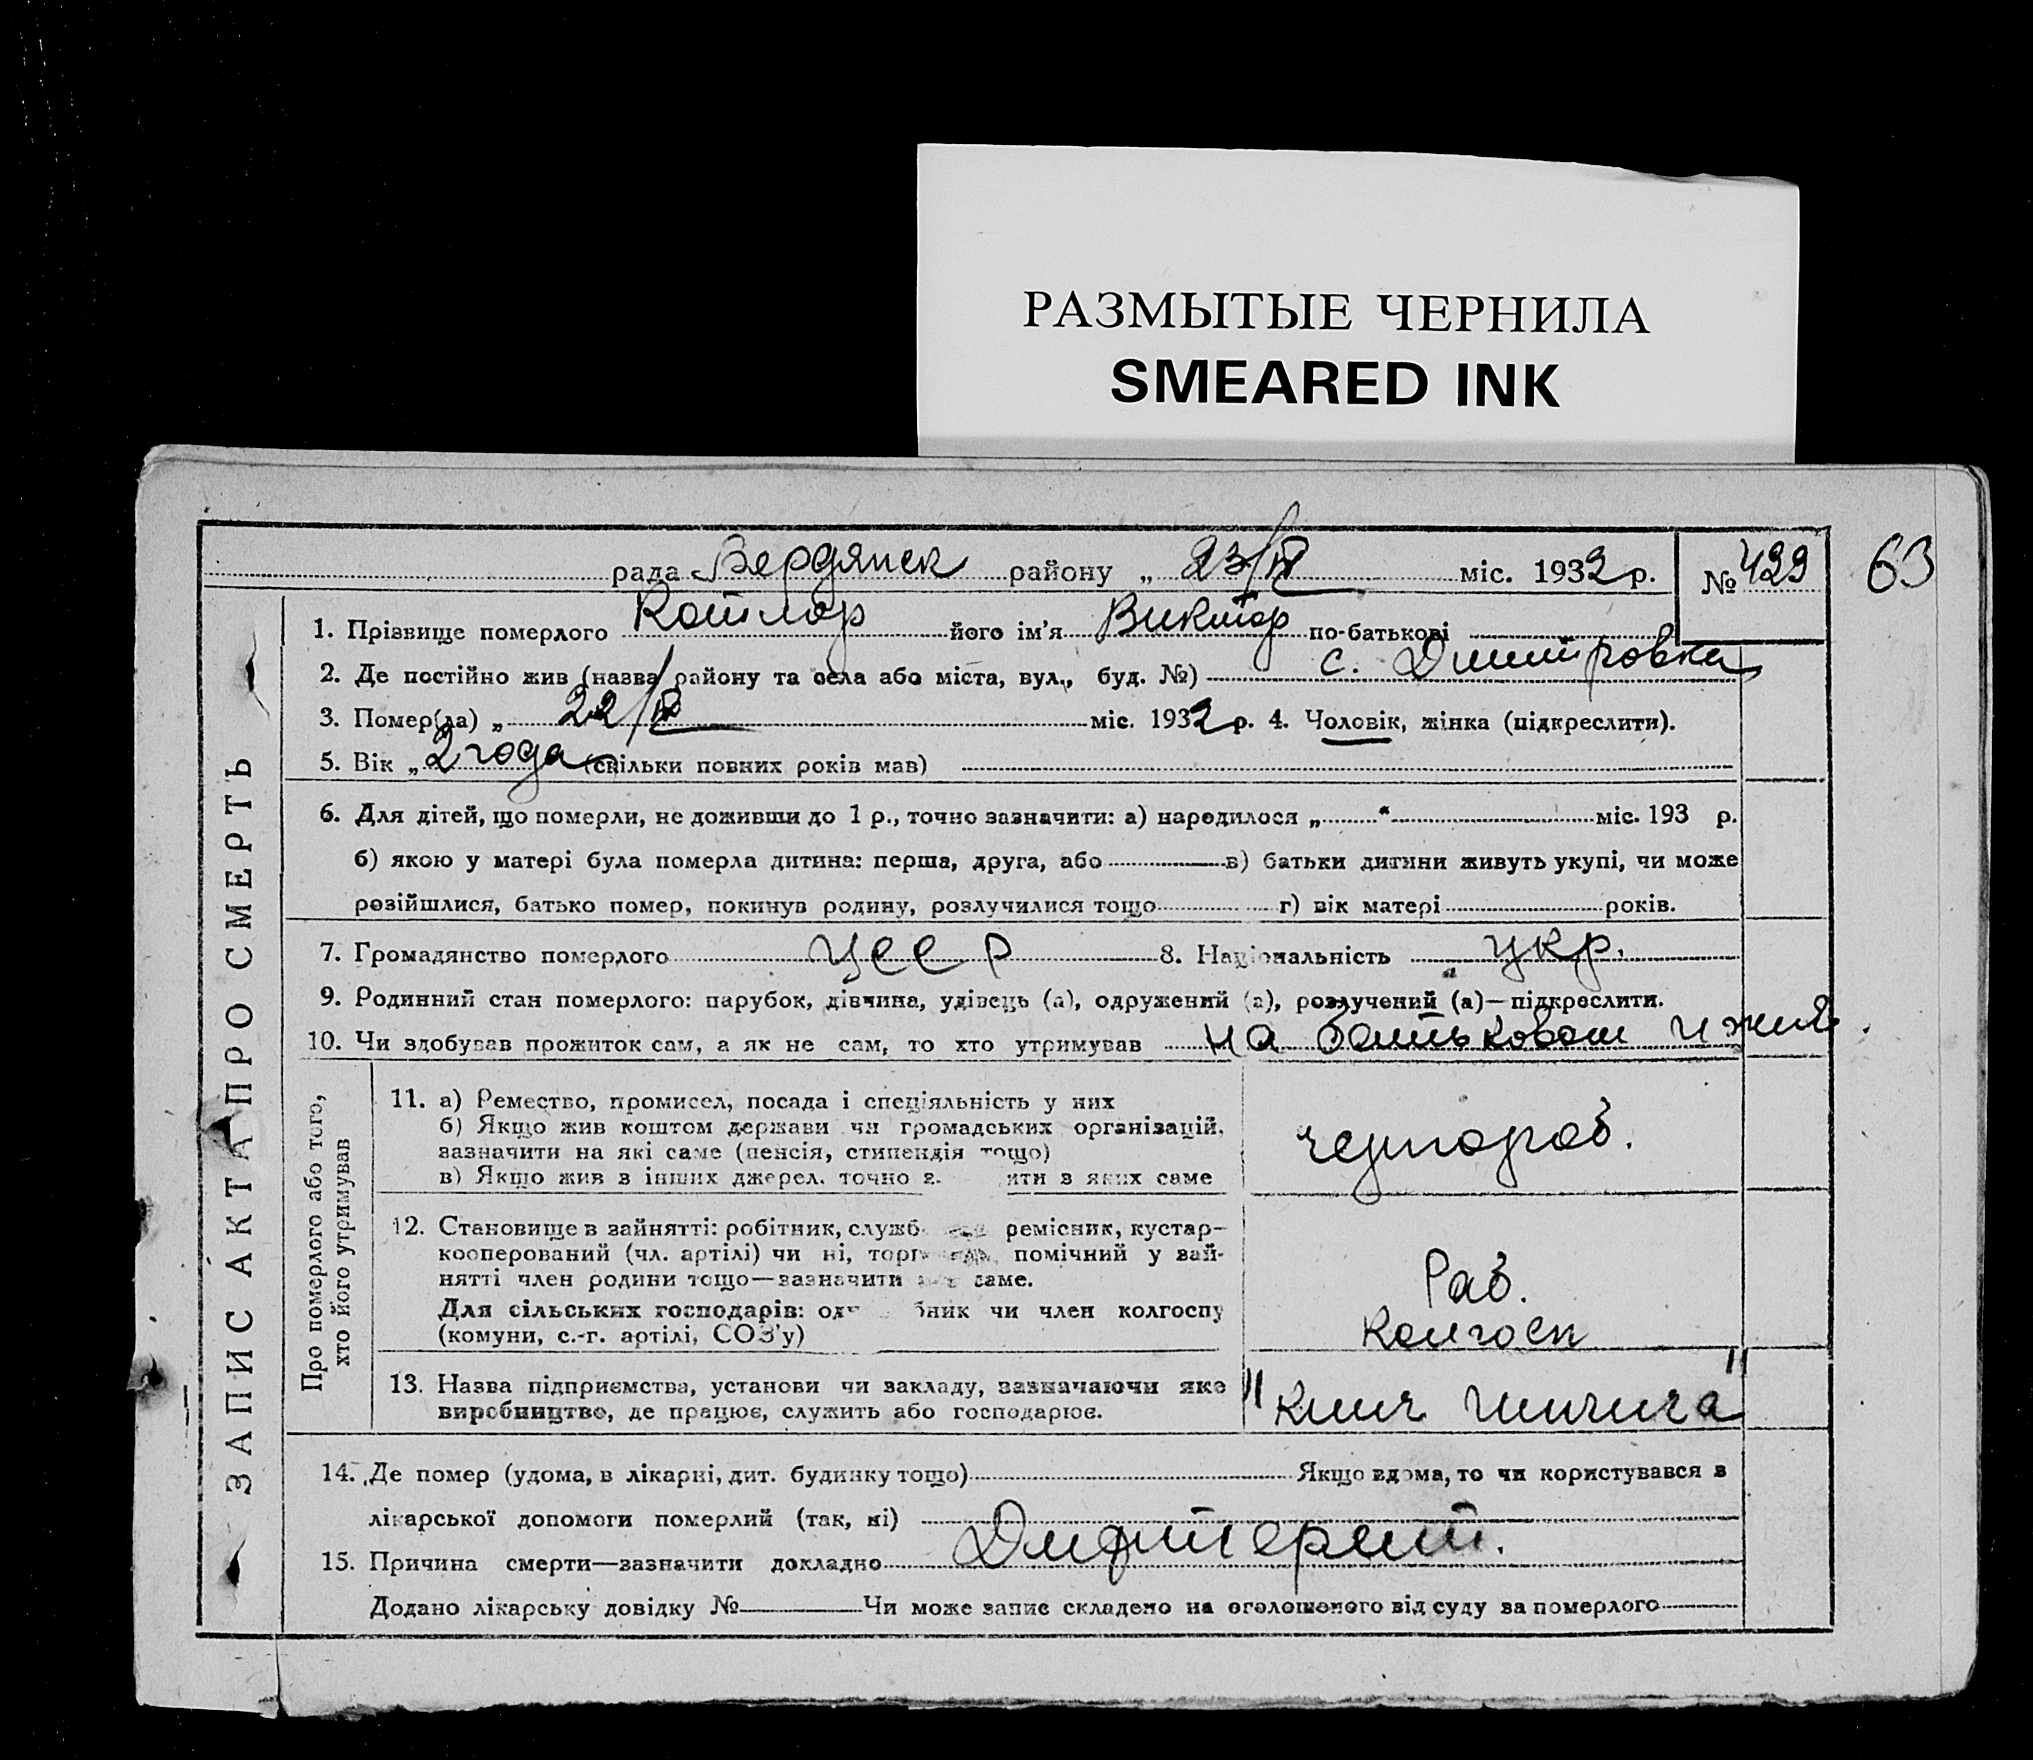 РАЗМЫТЫЕ ЧЕРНИЛА
SMEARED INK
63
рада Бердянск району „ 23/ міс. 1932 р. № 429
1. Прізвище померлого Котляр його ім'я Виктор по-батькові
2. Де постійно жив (назва району та села або міста, вул., буд. №) с. Дмитровка
3. Помер(ла) „ 22/ міс. 1932 р. 4. Чоловік, жінка (підкреслити).
5. Вік „ 2 года (скільки повних років мав)
6. Для дітей, що померли, не доживши до 1 р., точно зазначити: а) народилося „ “ міс. 193 р.
б) якою у матері була померла дитина: перша, друга, або в) батьки дитини живуть укупі, чи може
розійшлися, батько помер, покинув родину, розлучилися тощо г) вік матері років.
7. Громадянство померлого УССР 8. Національність укр.
9. Родинний стан померлого: парубок, дівчина, удівець (а), одружений (а), розлучений (а)—підкреслити.
10. Чи здобував прожиток сам, а як не сам, то хто утримував на батьковом иждив.
ЗАПИС АКТА ПРО СМЕРТЬ
Про померлого або того,
хто його утримував
11. а) Ремество, промисел, посада і спеціяльність у них
б) Якщо жив коштом держави чи громадських організацій,
зазначити на які саме (пенсія, стипендія тощо)
в) Якщо жив з інших джерел, точно з. ити з яких саме
чернораб.
12. Становище в зайнятті: робітник, служб ремісник, кустар-
кооперований (чл. артілі) чи ні, торг помічний у зай-
нятті член родини тощо—зазначити саме.
Для сільських господарів: од бник чи член колгоспу
(комуни, с.-г. артілі, СОЗ'у)
Раб.
Колгосп
13. Назва підприємства, установи чи закладу, зазначаючи яке
виробництво, де працює, служить або господарює.
"Клич Ильича"
14. Де помер (удома, в лікарні, дит. будинку тощо) Якщо вдома, то чи користувався з
лікарської допомоги померлий (так, ні)
15. Причина смерти—зазначити докладно Дифтерит.
Додано лікарську довідку № Чи може запис складено на оголошеного від суду за померлого